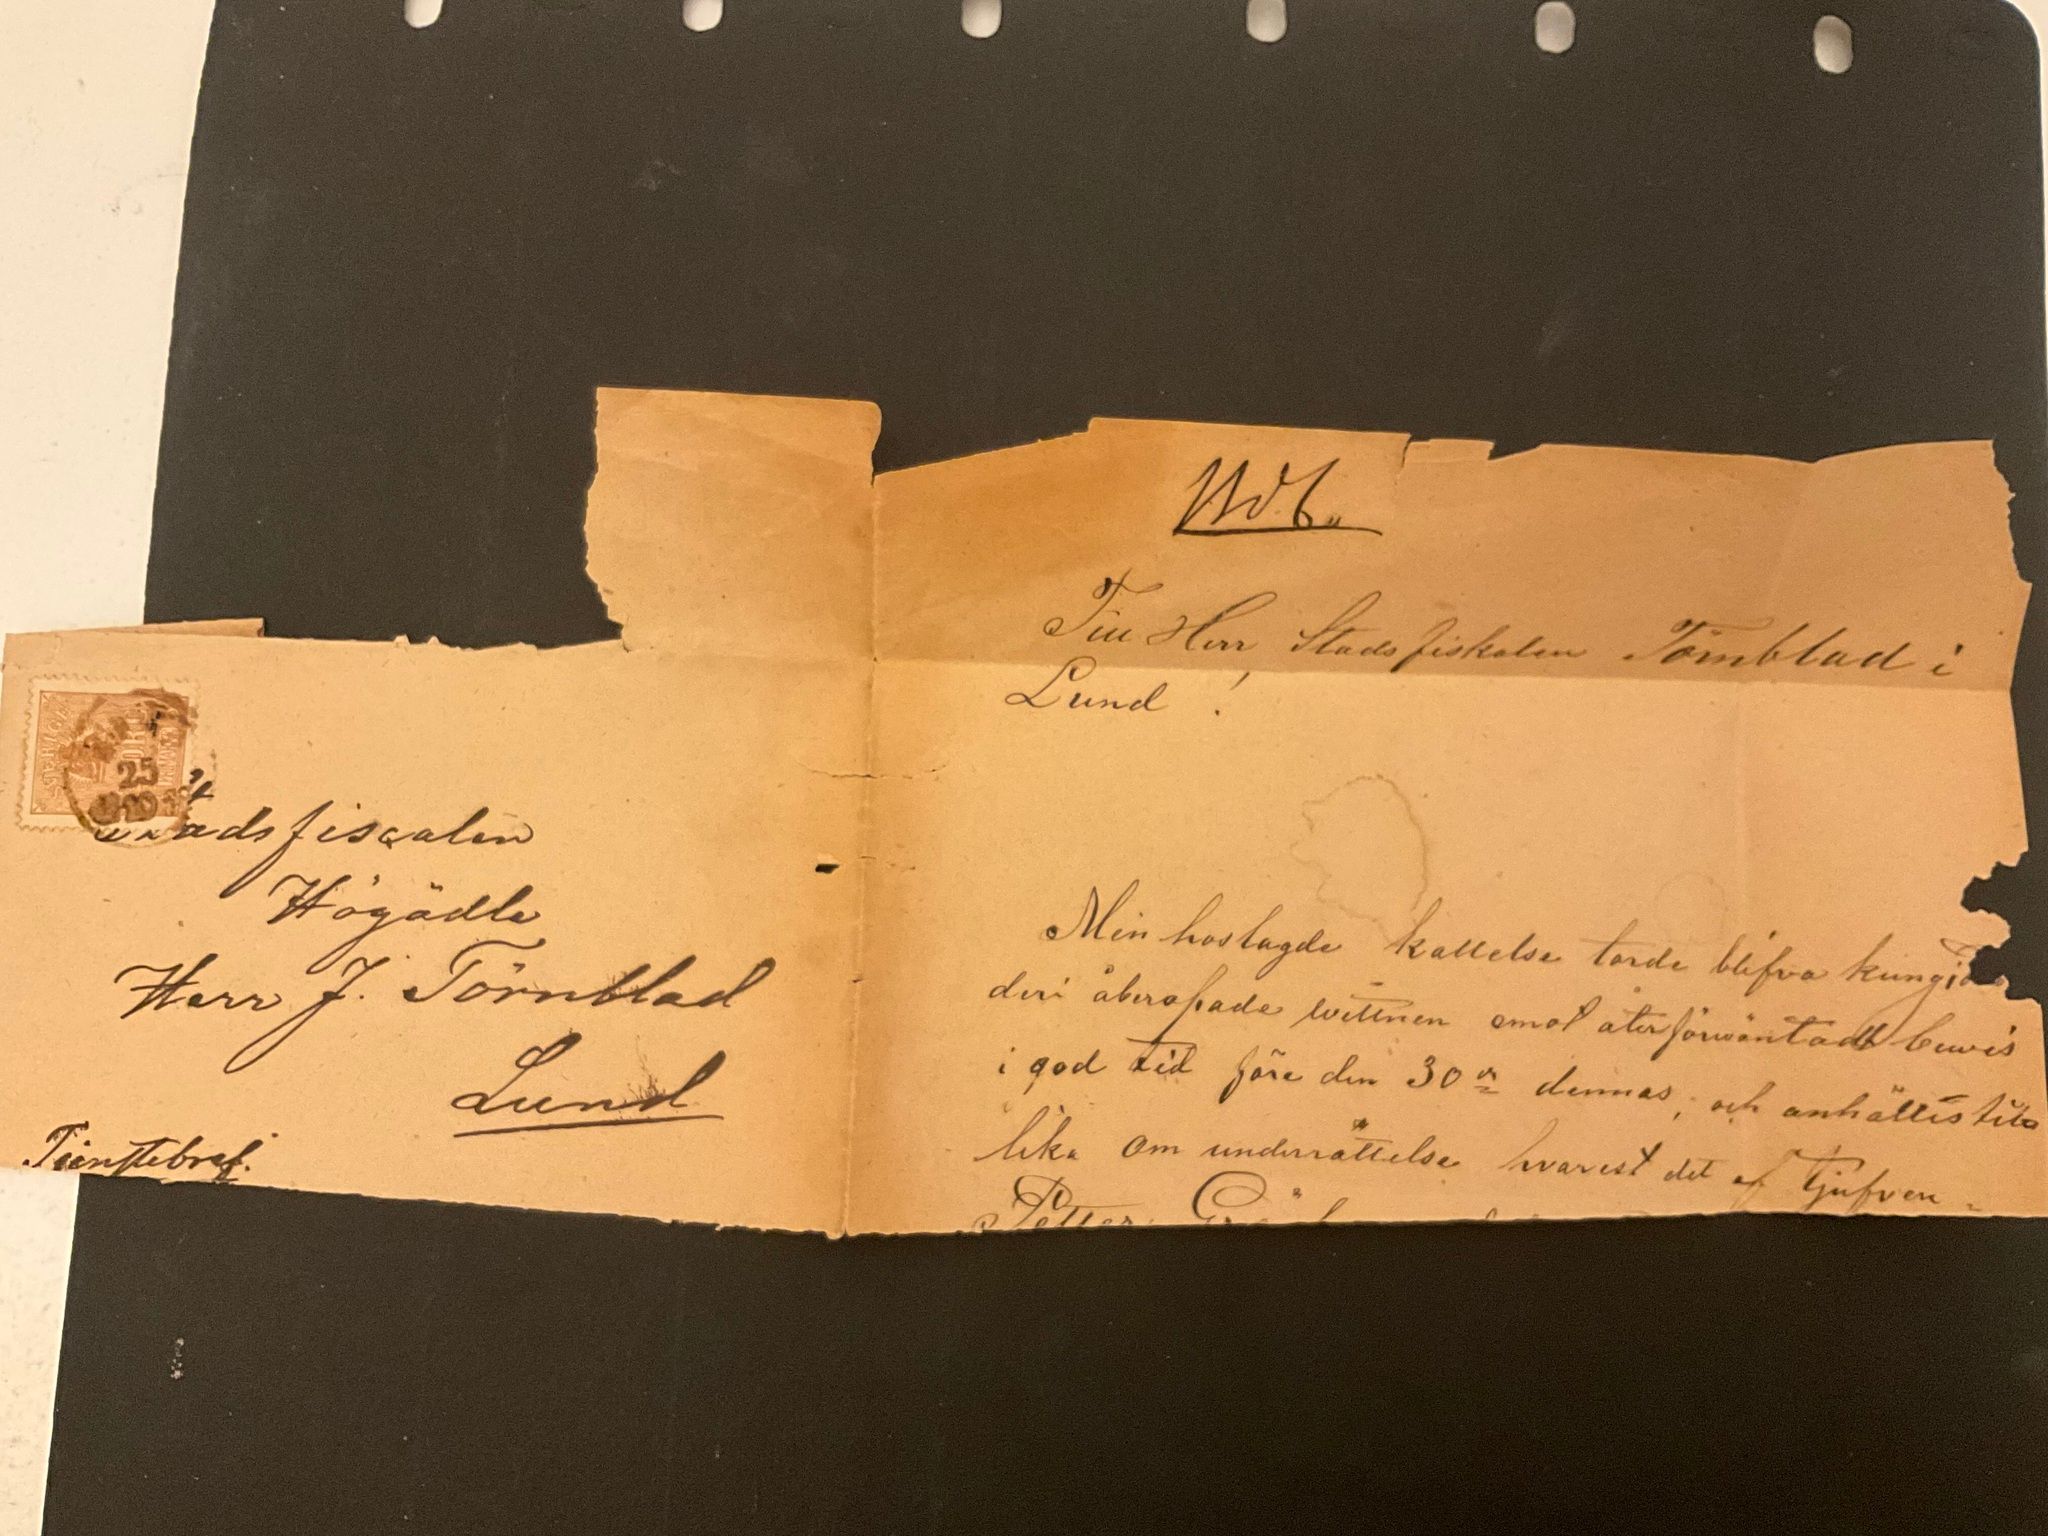 25
Stadsfiscalen
Högädle
Herr J. Törnblad
Lund
Tienstebref.
Till Herr Stadsfiskalen Törnblad i
Lund!
Min hoslagde kallelse torde blifva kungjo
deri åberopade wittnen emot återförwäntadt bewis
i god tid före den 30de dennes, och anhålles tila
lika om underrättelse hvarest det af tjufven
Petter